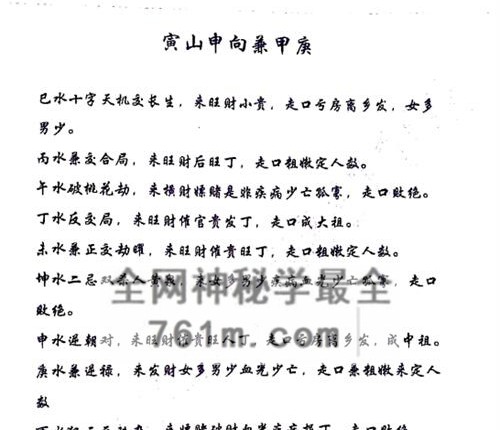 寅山申向兼甲庚
巳水十字天机交长生，来旺财小贵，走口亏房离乡发，女多
男少。
丙水兼交合局，来旺财后旺丁，走口粗嫩定人数。
午水破桃花劫，来横财嫖赌是非疾病少亡孤寡，走口败绝。
丁水反交局，来旺财催官贵发丁，走口成大祖。
未水兼正交劫曜，来旺财催贵旺丁，走口粗嫩定人数。
坤水二忌双杀人黄泉，来女多男少疾病血光少亡孤寡，走口
败绝。
全网神秘学最全
761m.com
申水逆朝对，来旺财催贵旺人丁，走口亏房离乡发，成中祖。
庚水兼逆禄，来发财女多男少血光少亡，走口兼粗嫩来定人
数